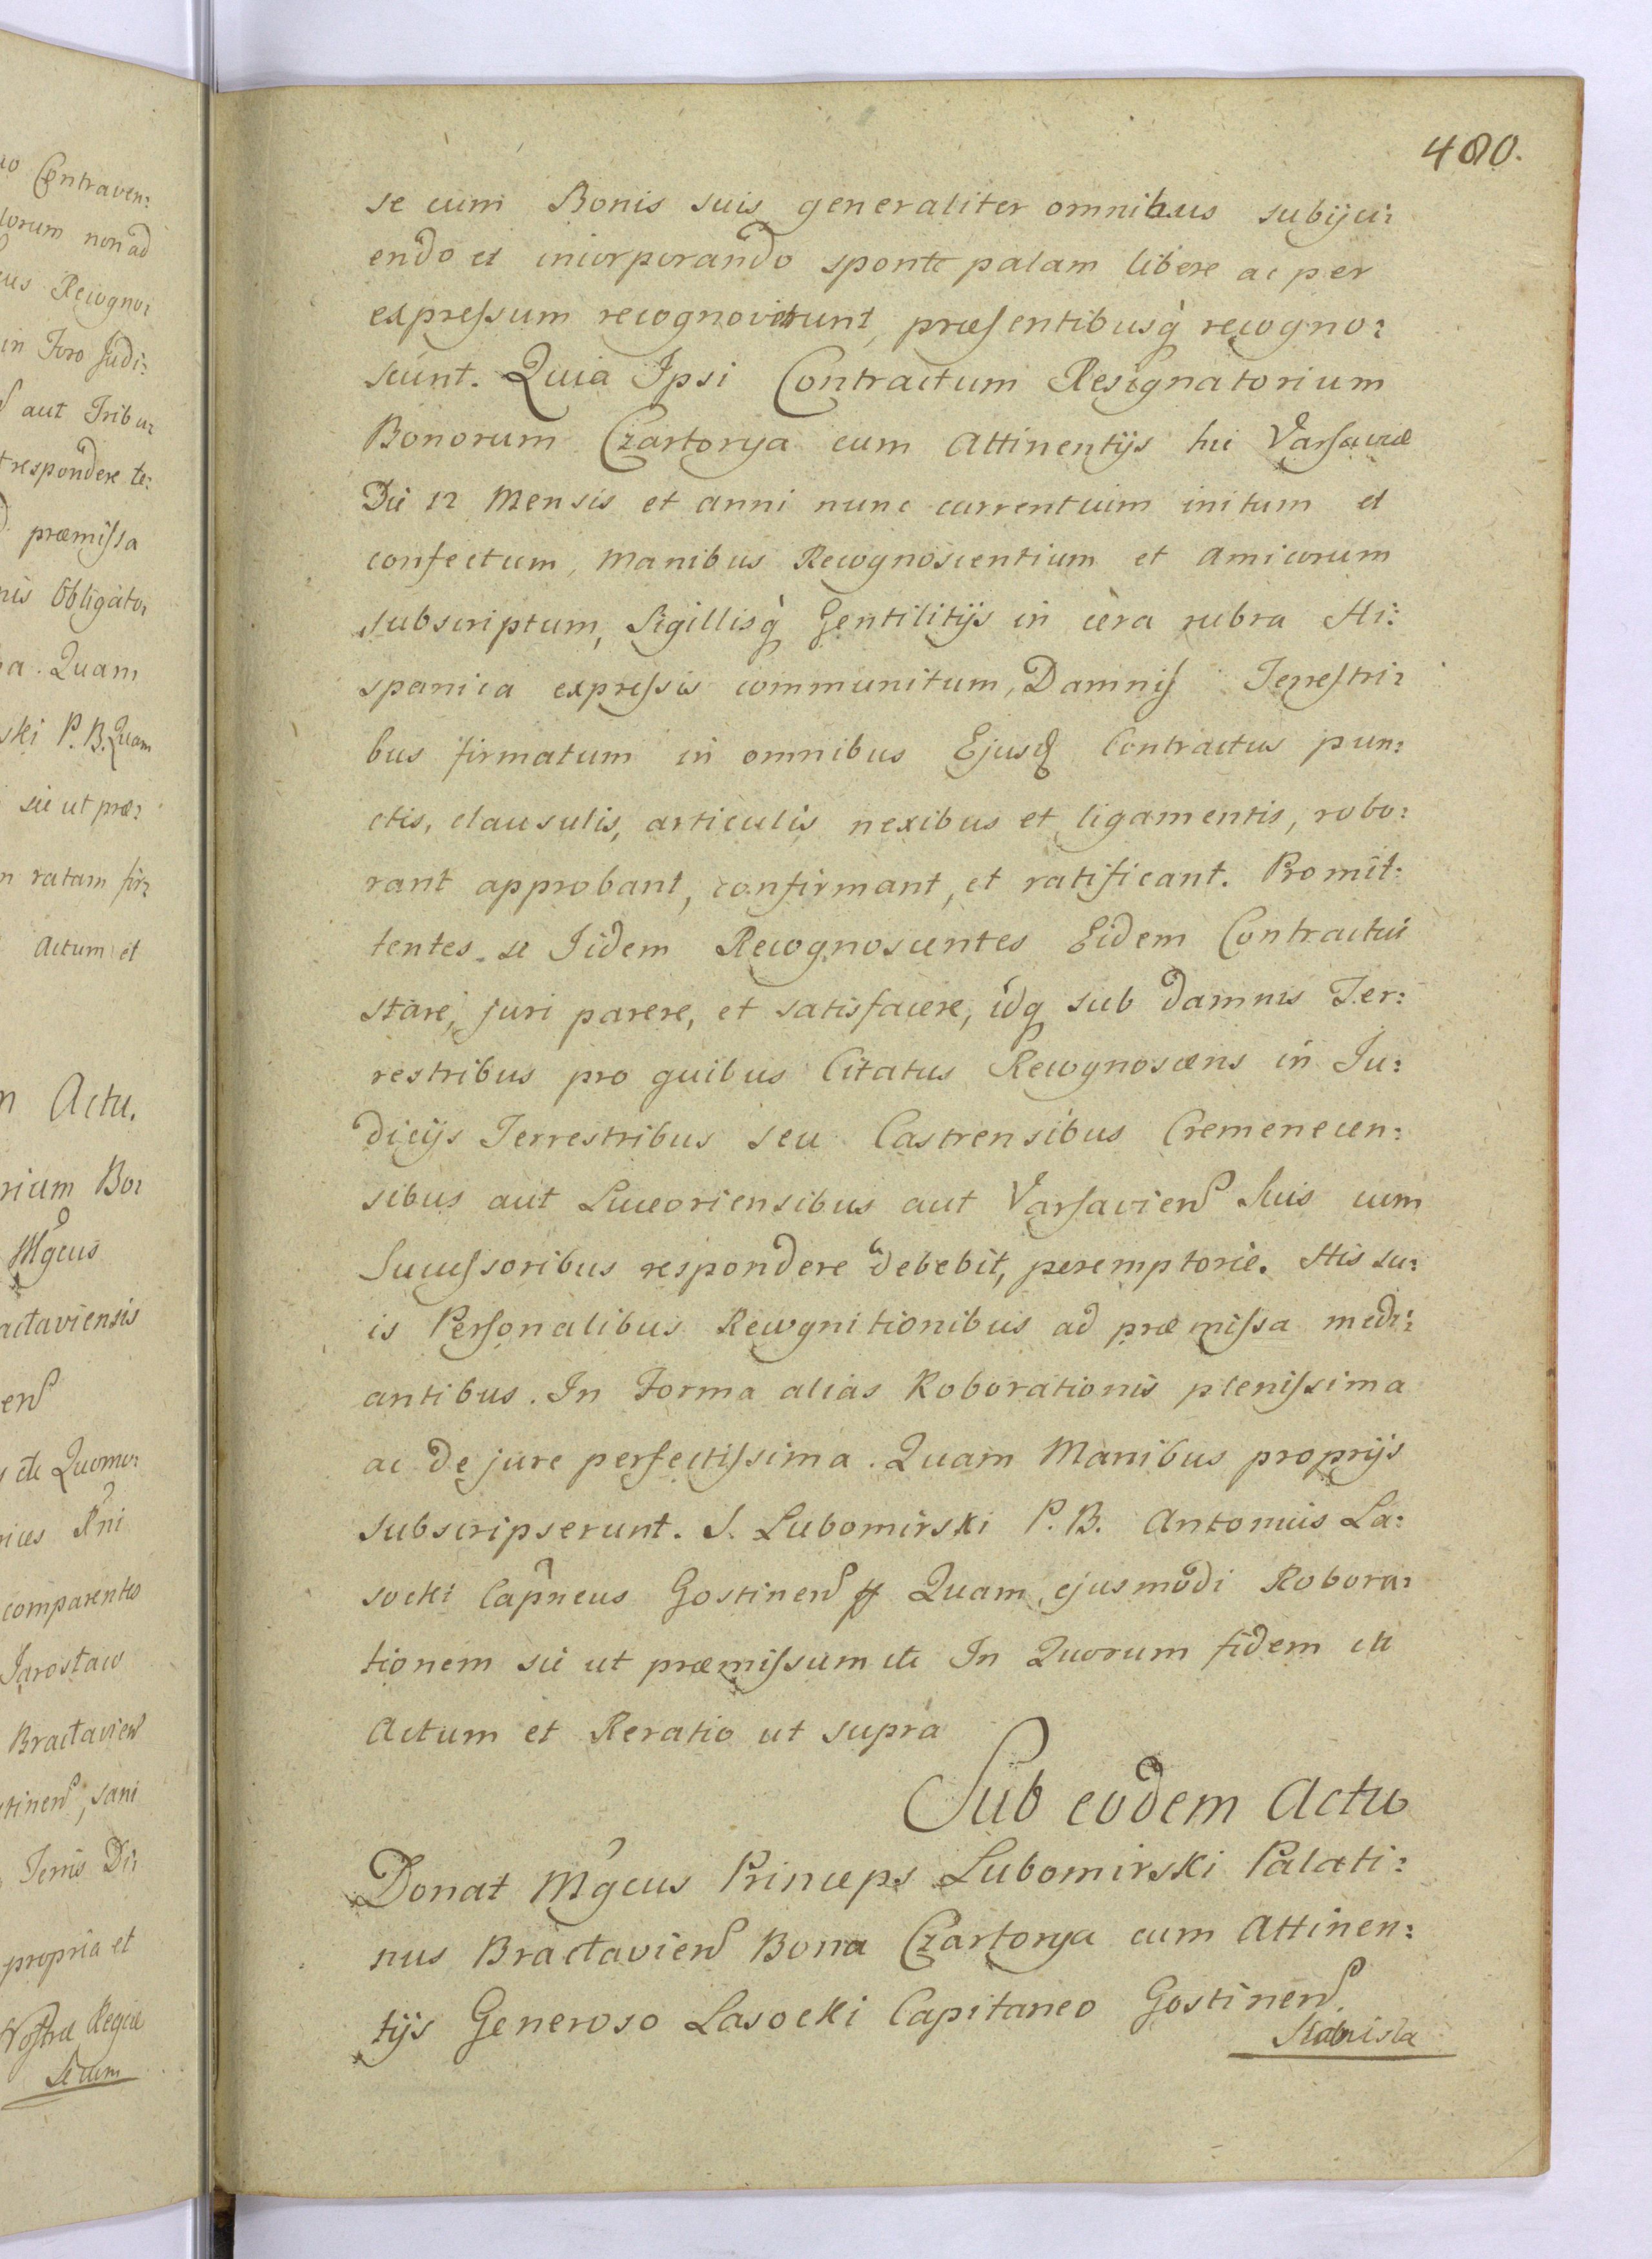 480.
se cum Bonis suis generaliter omnibus subijci:
endo et incorporando sponte palam libere ac per
expressum recognoverunt, præsentibusq̀ recogno:
scunt. Quia Ipsi Contractum Resignatorium
Bonorum Czartorya cum Attinentijs hic Varsaviæ
Die 12 Mensis et anni nunc currentium initum et
confectum, Manibus Recognoscentium et Amicorum
subscriptum, Sigillisq̀ Gentilitijs in cera rubra Hi:
spanica expressis communitum, Damnis Terrestri:
bus firmatum in omnibus Ejusd Contractus pun:
ctis, clausulis, articulis nexibus et ligamentis, robo:
rant approbant, confirmant, et ratificant. Promit:
tentes se Iidem Recognoscentes Eidem Contractui
stare, juri parere, et satisfacere, idq sub damnis Ter:
restribus pro quibus Citatus Recognoscens in Ju:
dicijs Terrestribus seu Castrensibus Cremenecen:
sibus aut Luceoriensibus aut Varsavien Suis cum
Successoribus respondere debebit, peremptorie. His su:
is Personalibus Recognitionibus ad præmissa medi:
antibus. In Forma alias Roborationis plenissima
ac de jure perfectissima. Quam Manibus proprijs
subscripserunt. S. Lubomirski P. B. Antonius La:
socki Capneus Gostinen Quam ejusmodi Robora:
tionem sic ut præmissum etc In Quorum fidem etc
Actum et Reratio ut supra
Sub eodem Actu
Donat Mgcus Princeps Lubomirski Palati:
nus Bractavien Bona Czartorya cum Attinen:
tijs Generoso Lasocki Capitaneo Gostinen.
Stanisla
Contraven:
lorum non ad
Recogno:
in Foro Judi:
aut Tribu:
respondere te:
præmissa
Obligato:
Quam
ski P. B. Quam
sic ut præ:
ratam fir:
Actum et
Actu.
rium Bo:
Mgcus
actaviensis
en
etc Quomo:
comparentes
Jarosław
Bractavien
tinen, sani
Terris Di:
propria et
Nostra Regia